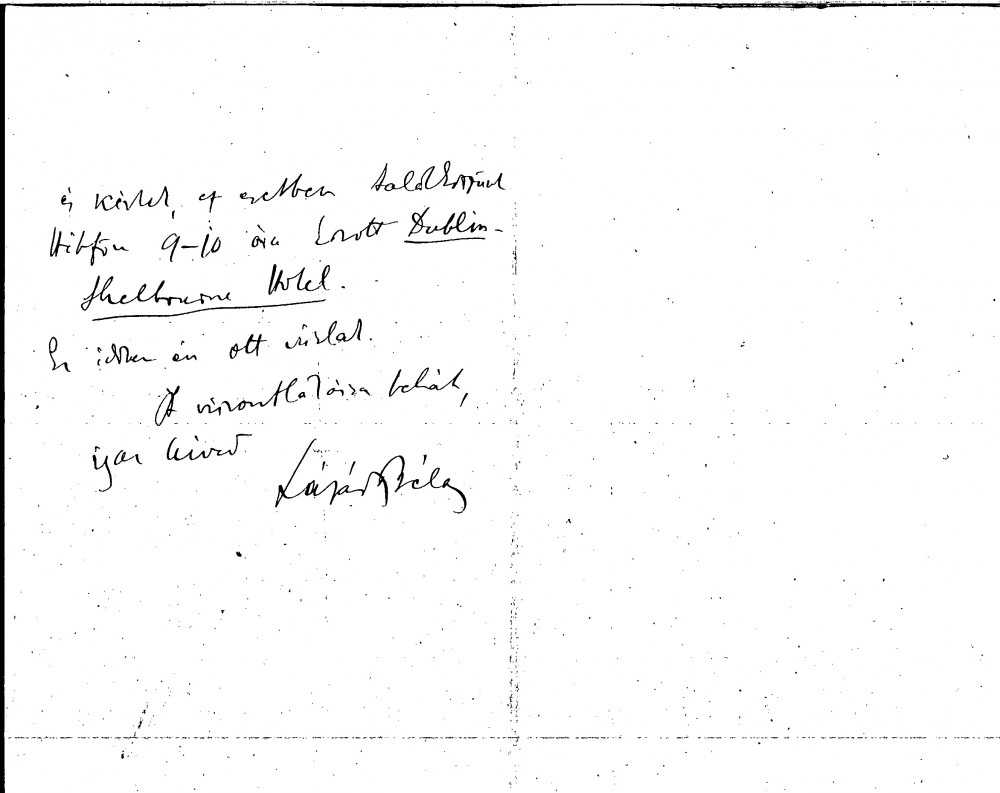 és kérlek, ez esetben találkozzunk
Hétfőn 9–10 óra között Dublin-
Shelbourne Hotel.
Ez időben én ott várlak.
A viszontlátásra tehát,
igaz híved
Lázár Béla